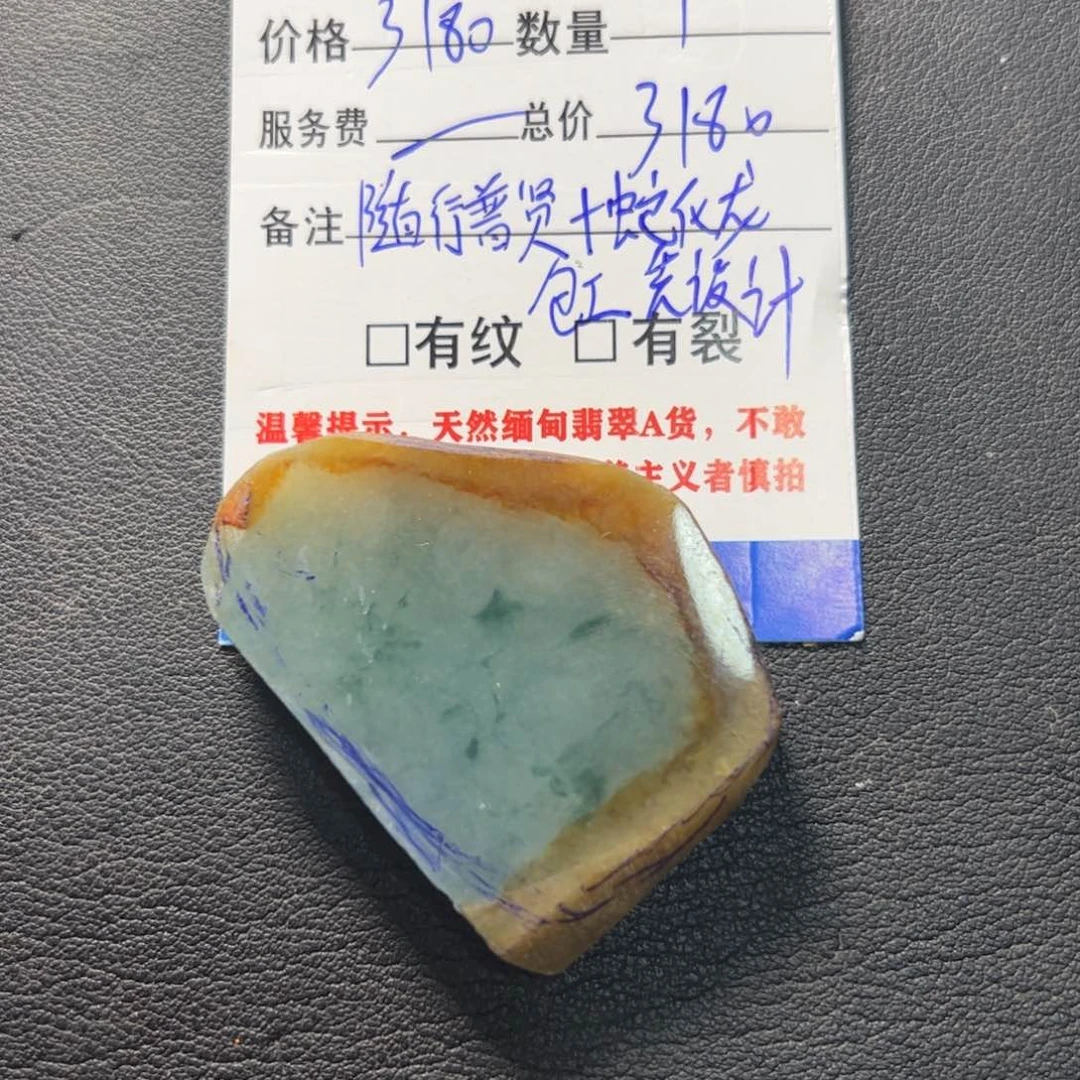 价格 3180 数量 1
服务费 — 总价 3180
备注 随行普贤+蛇化龙
包工 先设计
□有纹 □有裂
温馨提示：天然缅甸翡翠A货，不敢
主义者慎拍